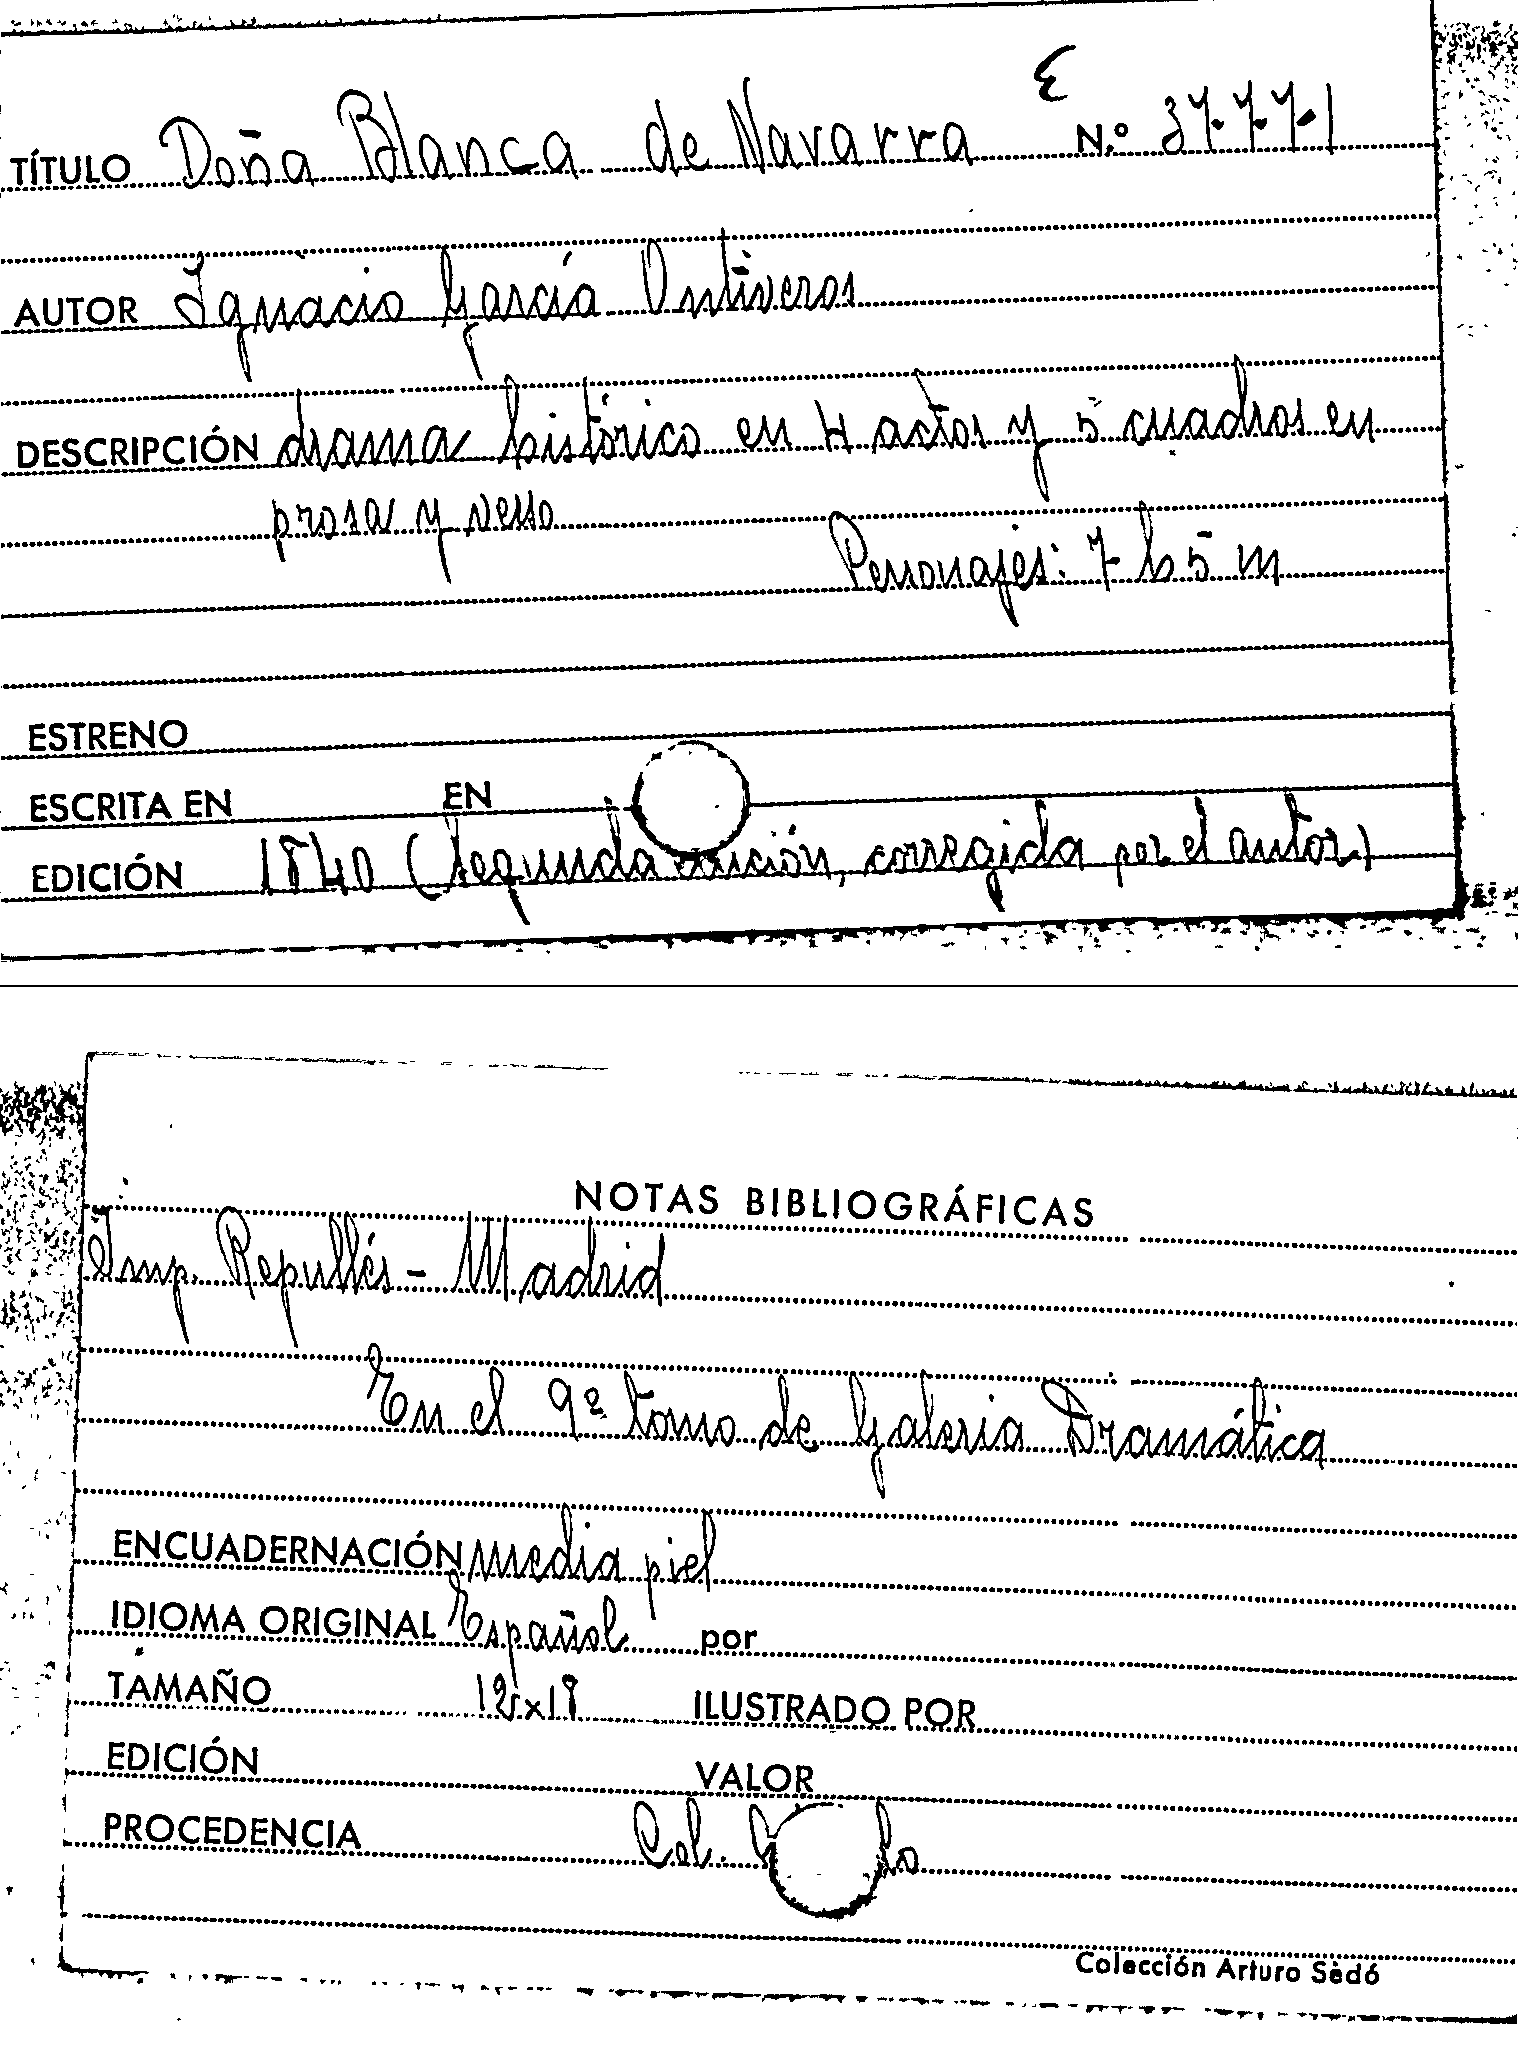 Ɛ
TÍTULO Doña Blanca de Navarra N.º 37771
AUTOR Ignacio García Ontiveros
DESCRIPCIÓN drama histórico en 4 actos y 5 cuadros en
prosa y verso
Personajes: 7 h 5 m
ESTRENO
ESCRITA EN EN
EDICIÓN 1840 (Segunda edición, corregida por el autor)
NOTAS BIBLIOGRÁFICAS
Imp. Repullés - Madrid
En el 9º tomo de Galeria Dramática
ENCUADERNACIÓN media piel
IDIOMA ORIGINAL Español por
TAMAÑO 12x18 ILUSTRADO POR
EDICIÓN VALOR
PROCEDENCIA Col.
Colección Arturo Sedó